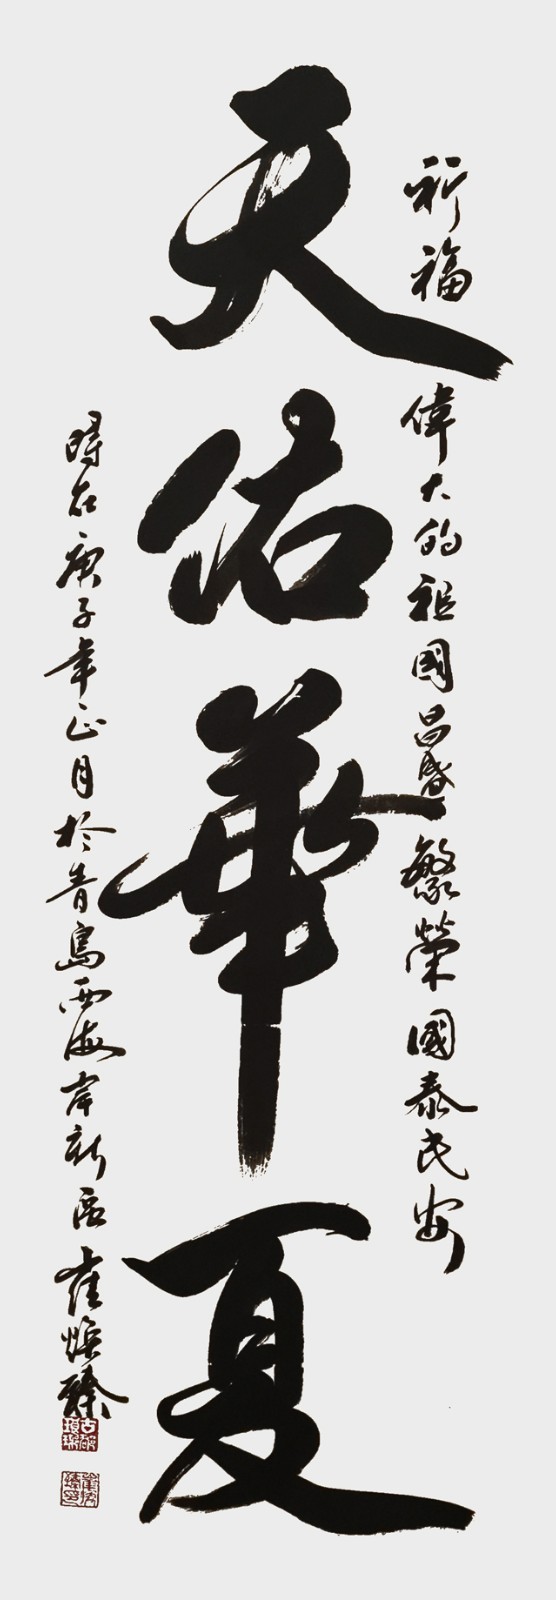 祈福偉大的祖國昌繁榮國泰民安
天佑華夏
時在庚子年正月於青島西海岸新區崔煥臻